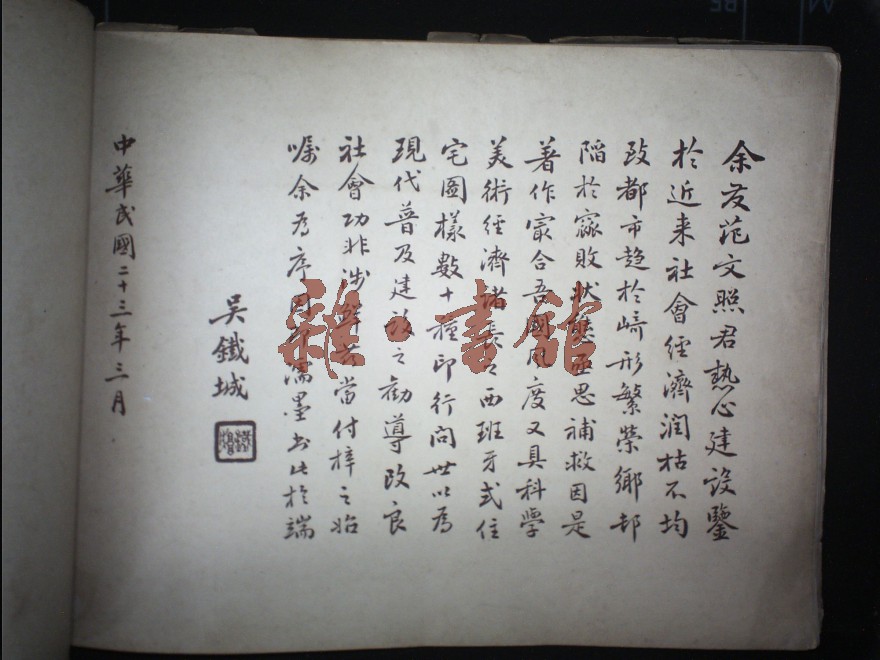 余友范文照君熱心建設鑒
於近来社會經濟润枯不均
致都市趋於崎形繁榮鄉邨
陷於窳敗状態亟思補救因是
著作最合吾國風度又具科學
美術經濟諸長之西班牙式住
宅圖樣數十種印行問世以為
現代普及建設之勸導改良
社會功非涉鮮茲當付梓之始
嘱余為序因即濡墨书此於端
吳鐵城
中華民國二十三年三月
雜·書館